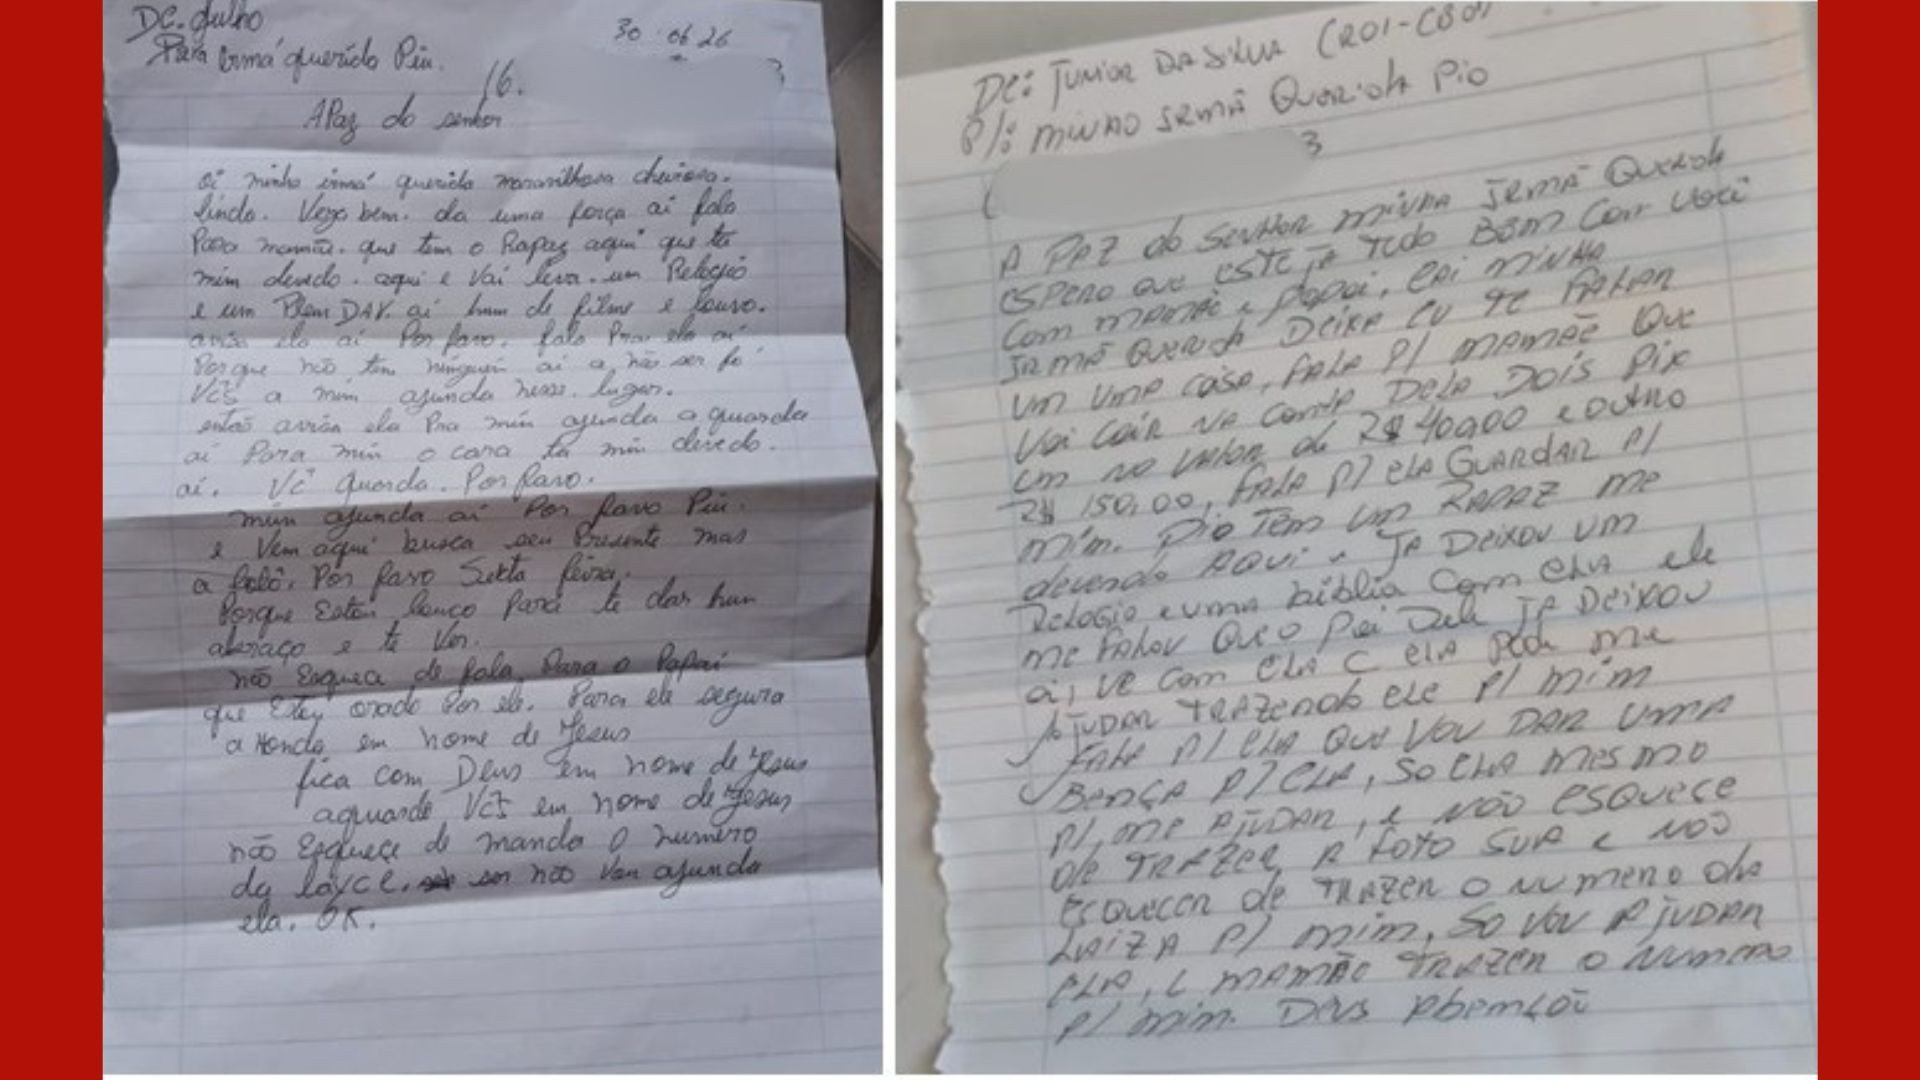 De. Julho
30 06 26
Para Irmá querido Piu.
16.
3
A Paz do senhor
oi minha irmá querida maravilhosa cheirosa.
linda. Vego bem. da uma força ai fala
Para mamãe. que tem o Rapaz aqui que ta
mim devedo. aqui e Vai leva. um Relogio
e um Plem DAY. ai hum de filme e louvo.
avisa ela ai Por favo. fala Pra ela ai
Porque não tem ninguém ai a não ser só
Vcs a mim ajunda nesse. lugar.
então avisa ela Pra mim ajunda a guarda
ai Para mim o cara ta mim devedo.
ai. Vê Guarda. Por favo.
mim ajunda ai Por favo Piu.
e Vem aqui busca seu Presente mas
a falô. Por favo Sexta feira.
Porque Estou louco Para te dar hum
abraço e te Ver.
não Esqueca de fala Para o Papai
que Estey orado Por ele. Para ele segura
a Honda em nome de Jesus
fica com Deus em nome de Jesus
aguarde Vcs em nome de Jesus
não Esqueçe de manda o numero
da layce. não Vou ajunda
ela. OK.
De: Junior Da Silva (R01-C80)
P/: minha irmã Querida Pio
3
A Paz do Senhor minha irmã Querida
espero que esteja tudo Bom com você
com mamãe e papai, Ei minha
irmã Querida Deixa eu te falar
um uma coisa, fala P/ mamãe que
vai cair na conta Dela Dois Pix
um no valor de R$ 400,00 e outro
R$ 150,00, fala P/ ela Guardar P/
mim. Pio Tem um Rapaz me
devendo aqui e Ja Deixou um
Relogio e uma biblia com ela ele
me falou que o pai Dele Ja Deixou
ai, ve com ela c ela pode me
ajudar trazendo ele P/ mim
fala P/ ela que vou dar uma
Bença P/ ela, so ela mesmo
P/ me ajudar, e não esqueçe
de trazer a foto sua e não
esquecer de trazer o numero da
Laiza P/ mim, So vou ajudar
ela, c mamãe trazer o numero
P/ mim. Deus Abençoi